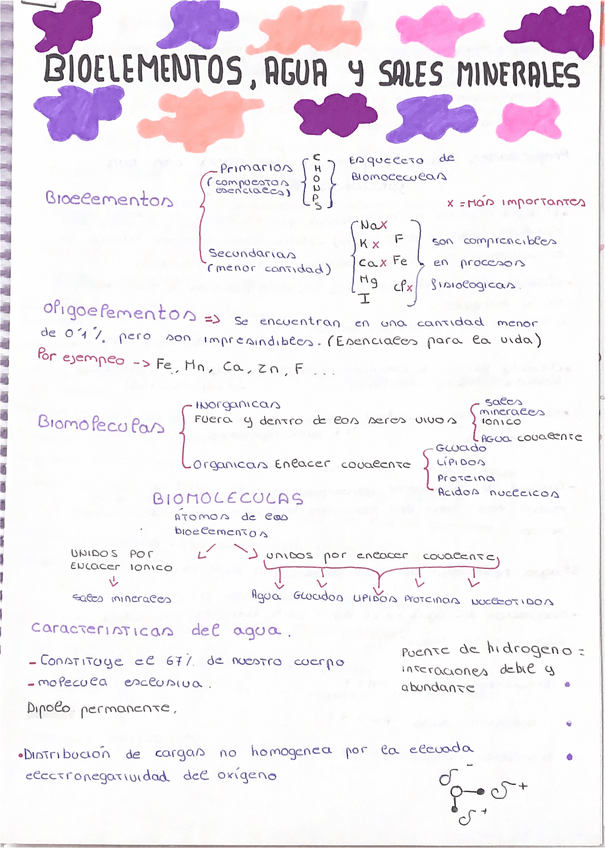 BIOELEMENTOS, AGUA Y SALES MINERALES
Bioelementos
Primarios
(compuestos
esenciales)
C
H
O
N
P
S
Esqueleto de
Biomoleculas
x = Más importantes
Secundarias
(menor cantidad)
Na x
K x F
Ca x Fe
Mg Cl x
I
son comprencibles
en procesos
fisiologicas.
Oligoelementos => Se encuentran en una cantidad menor
de 0'1%, pero son impresindibles. (Esenciales para la vida)
Por ejemplo -> Fe, Mn, Ca, Zn, F ...
Biomoleculas
Inorganicas
Fuera y dentro de los seres vivos
Sales
minerales
Ionico
Agua covalente
Organicas Enlacer covalente
Glucido
Lípidos
Proteina
Acidos nucleicos
BIOMOLECULAS
Átomos de los
bioelementos
UNIDOS POR
ENLACER IONICO
Sales minerales
unidos por enlacer covalente
Agua Glucidos LIPIDOS PROTEINAS NUCLEOTIDOS
Caracteristicas del agua.
- Constituye el 67% de nuestro cuerpo
- molecula esclusiva.
Dipolo permanente.
Puente de hidrogeno =
interaciones debil y
abundante
• Distribución de cargas no homogenea por la elevada
electronegatividad del oxígeno
δ -
δ +
δ +